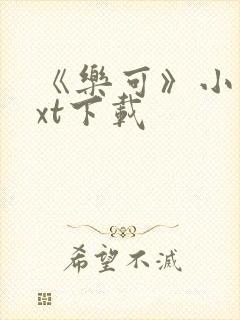 《樂可》小
xt下載
希望不滅